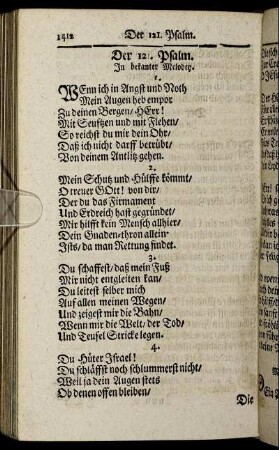 1512 Der 121. Psalm.
Der 121. Psalm.
In bekanter Melodey.
1.
WEnn ich in Angst und Noth
Mein Augen heb empor
Zu deinen Bergen/ HErr!
Mit Seuftzen und mit Flehen/
So reichst du mir dein Ohr/
Daß ich nicht darff betrübt/
Von deinem Antlitz gehen.
2.
Mein Schutz und Hülffe kömmt/
O treuer GOtt! von dir/
Der du das Firmament
Und Erdreich hast gegründet/
Mir hilfft kein Mensch allhier/
Dein Gnaden-thron allein
Ists/ da man Rettung findet.
3.
Du schaffest/ daß mein Fuß
Mir nicht entgleiten kan/
Du leitest selber mich
Auf allen meinen Wegen/
Und zeigest mir die Bahn/
Wenn mir die Welt/ der Tod/
Und Teufel Stricke legen.
4.
Du Hüter Israel!
Du schläffst noch schlummerst nicht/
Weil ja dein Augen stets
Ob denen offen bleiben/
Die